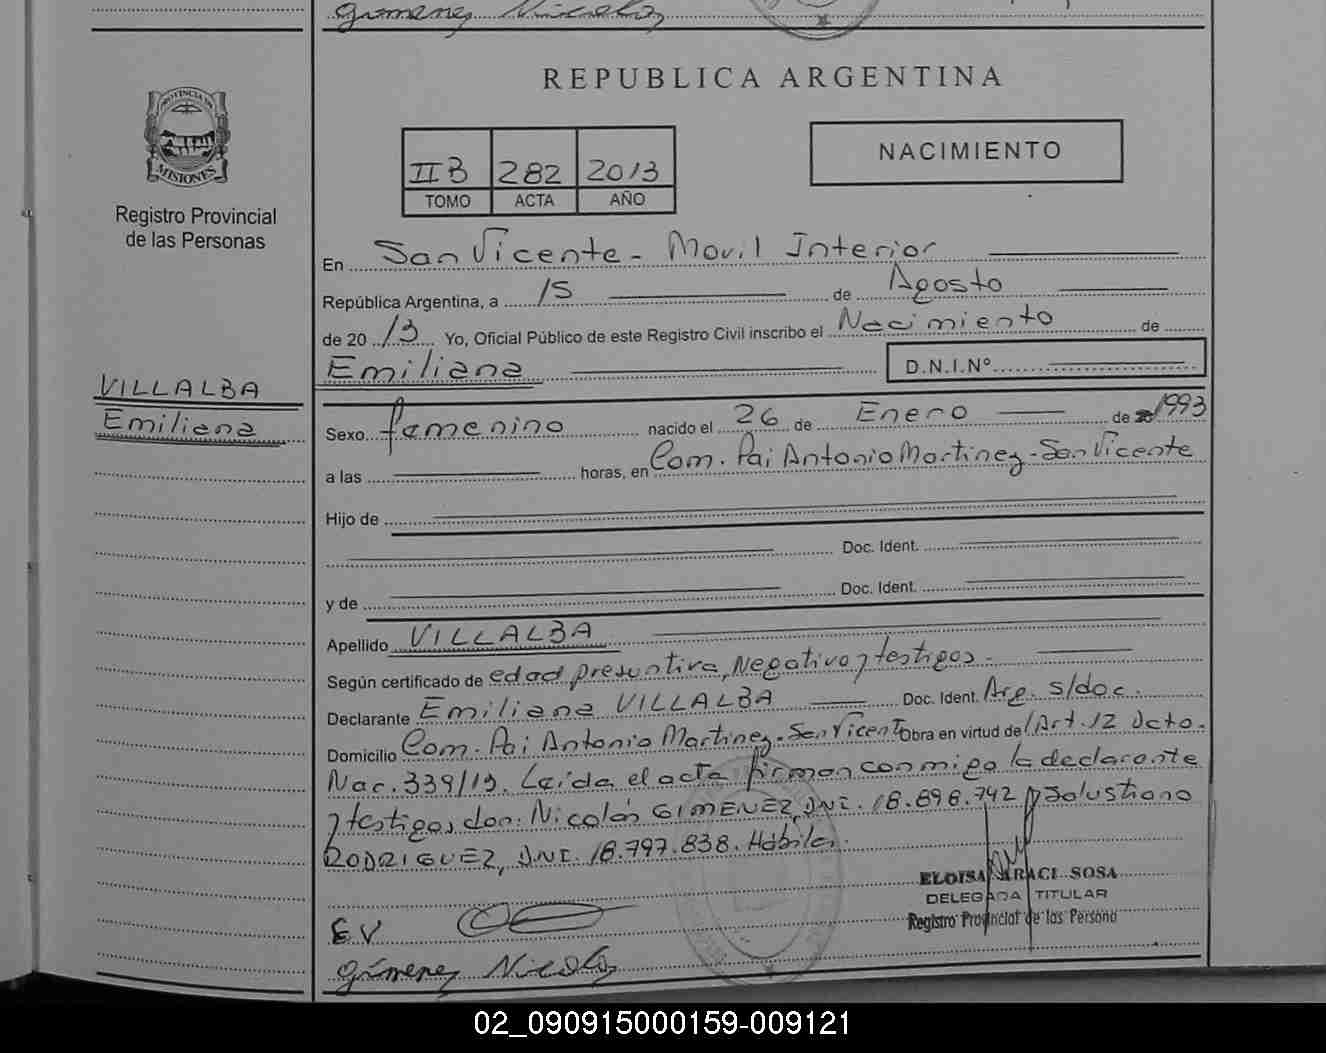 Gimenez Nicolas
REPUBLICA ARGENTINA
PROVINCIA DE
MISIONES
Registro Provincial
de las Personas
II B 282 2013
TOMO ACTA AÑO
NACIMIENTO
En San Vicente - Movil Interior
República Argentina, a 15 de Agosto
de 20 13 Yo, Oficial Público de este Registro Civil inscribo el Nacimiento de
Emiliana D.N.I.Nº
VILLALBA
Emiliana
Sexo femenino nacido el 26 de Enero de 1993
a las horas, en Com. Pai Antonio Martinez - San Vicente
Hijo de
Doc. Ident.
y de Doc. Ident.
Apellido VILLALBA
Según certificado de edad presuntiva, Negativo y testigos.
Declarante Emiliana VILLALBA Doc. Ident. Arg. s/doc.
Domicilio Com. Pai Antonio Martinez - San Vicente Obra en virtud de Art. 12 Dcto.
Nac. 339/13. Leída el acta firman conmigo la declarante
y testigos, don: Nicolás GIMENEZ, DNI. 18.898.742 y Solustiano
RODRIGUEZ, DNI. 18.797.838. Hábiles.
ELOISA ARACI SOSA
DELEGADA TITULAR
Registro Provincial de las Persona
E V
Gimenez Nicolas
02_090915000159-009121